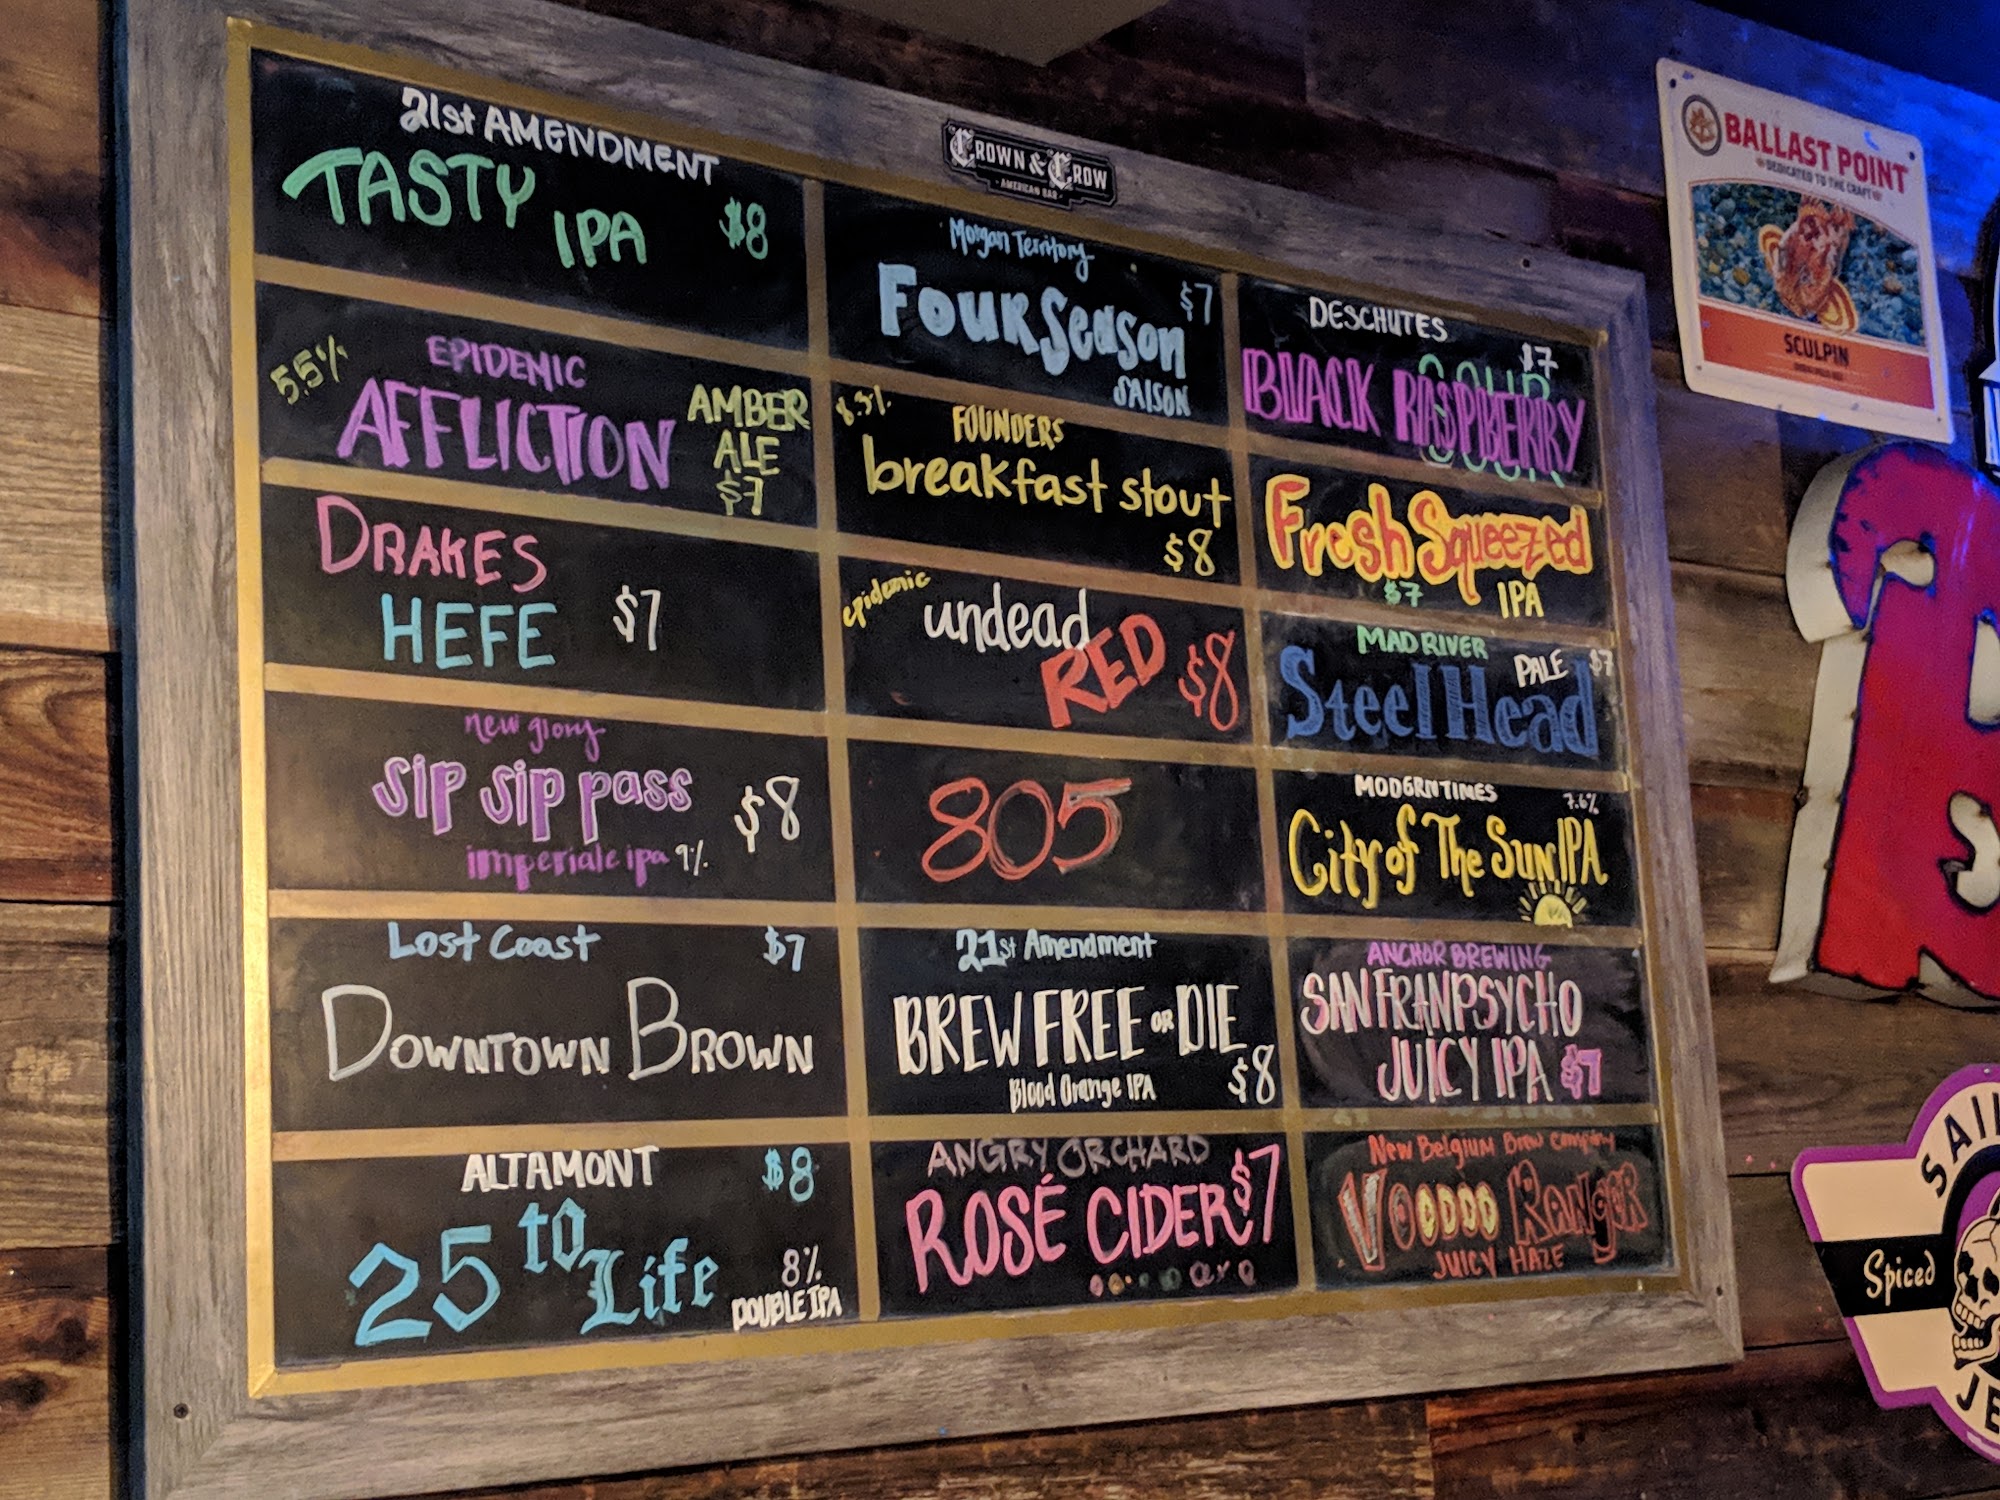 CROWN & CROW
AMERICAN BAR
21st AMENDMENT
TASTY IPA $8
5.5% EPIDEMIC
AFFLICTION
AMBER
ALE
$7
DRAKES
HEFE $7
new glory
sip sip pass $8
imperiale ipa 9%
Lost Coast $7
DOWNTOWN BROWN
ALTAMONT $8
25 to Life
8%
DOUBLE IPA
Morgan Territory
FOUR SEASON $7
SAISON
8.3% FOUNDERS
breakfast stout
$8
epidemic undead
RED $8
805
21st Amendment
BREW FREE OR DIE
Blood Orange IPA $8
ANGRY ORCHARD
ROSÉ CIDER $7
DESCHUTES
$7
BLACK RASPBERRY
SOUR
Fresh Squeezed
$7 IPA
MAD RIVER
PALE $7
Steel Head
MODERN TIMES 7.6%
City of The Sun IPA
ANCHOR BREWING
SAN FRANPSYCHO
JUICY IPA $7
New Belgium Brew Company
VOODOO RANGER
JUICY HAZE
BALLAST POINT
DEDICATED TO THE CRAFT
SCULPIN
SAIL
Spiced
JE